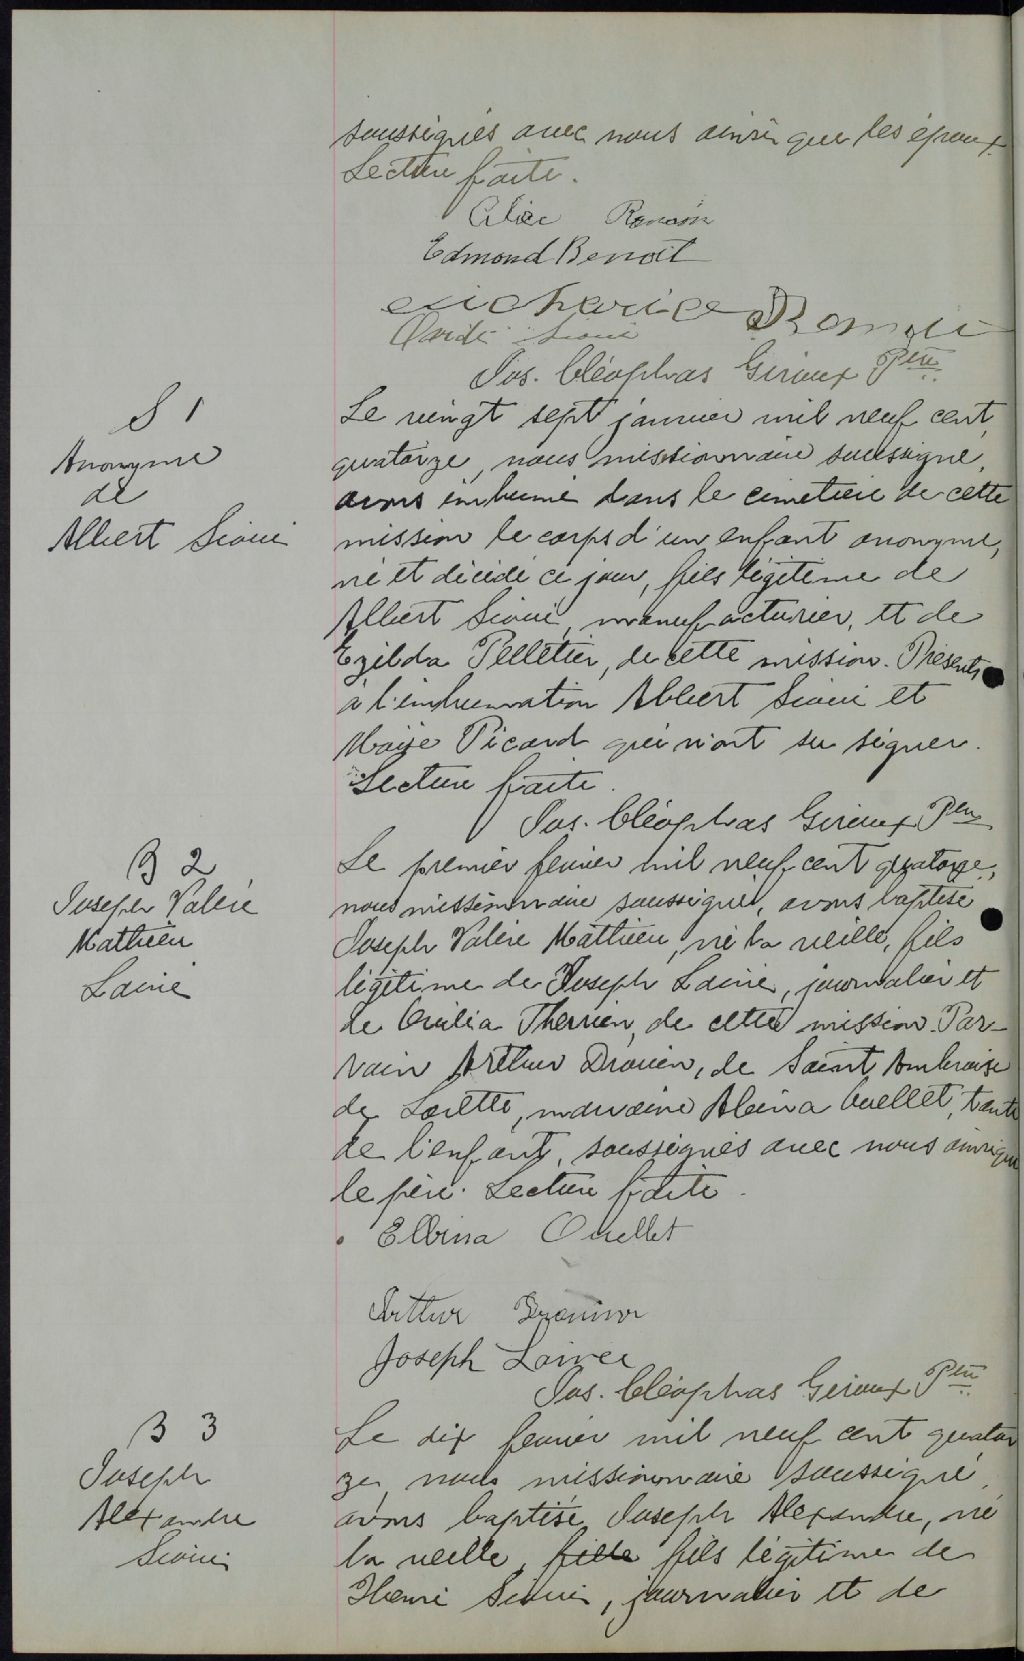 soussignés avec nous ainsi que les époux.
Lecture faite.
Alice Romain
Edmond Benoit
Romain
Sioui
Jos. Cléophas Giroux Ptre
S 1
Anonyme
de
Albert Sioui
Le vingt sept janvier mil neuf cent
quatorze, nous missionnaire soussigné,
avons inhumé dans le cimetière de cette
mission le corps d'un enfant anonyme,
né et décédé ce jour, fils légitime de
Albert Sioui, manufacturier, et de
Ezilda Pelletier, de cette mission. Présents
à l'inhumation Albert Sioui et
Picard qui n'ont su signer.
Lecture faite.
Jos. Cléophas Giroux Ptre
B 2
Joseph Valère
Mathieu
Lainé
Le premier fevrier mil neuf cent quatorze,
nous missionnaire soussigné, avons baptisé
Joseph Valère Mathieu, né la veille, fils
légitime de Joseph Lainé, journalier et
de Therrien, de cette mission. Par-
rain Arthur Drouin, de Saint Ambroise
de Lorette, marraine Albina Ouellet, tante
de l'enfant, soussignés avec nous ainsi que
le père. Lecture faite.
Elbina Ouellet
Arthur
Joseph Lainee
Jos. Cléophas Giroux Ptre
B 3
Joseph
Alexandre
Sioui
Le dix fevrier mil neuf cent quator
ze, nous missionnaire soussigné,
avons baptisé Joseph Alexandre, né
la veille, fille fils légitime de
Henri Sioui, journalier et de